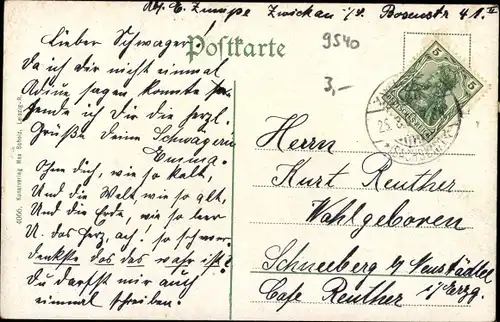 Abs. E. Zumpe Zwickau i/S. Bosenstr. 41. II
Postkarte
9540
3,-
Lieber Schwager!
Da ich dir nicht einmal
Adieu sagen konnte
sende ich Dir die herzl.
Grüße Deine Schwägerin
Emma.
Ohne dich, wie so kalt,
Und die Welt, wie so alt,
Und die Erde, wie so leer
U. das Herz, ach! so schwer.
denkste das das wahr ist?
Du darfst mir auch
einmal schreiben.
Herrn
Kurt Reuther
Wohlgeboren
Schneeberg b/ Neustädtel
i/Erzg.
Cafe Reuther
5 5
4066. Kunstverlag Max Leipzig-R.